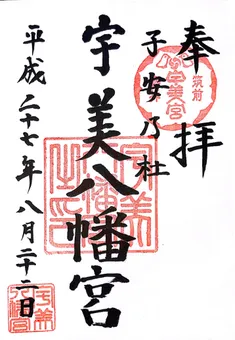 奉拝
筑前
宇美宮
子安乃杜
宇美八幡宮
平成二十七年八月二十二日
宇美
八幡宮